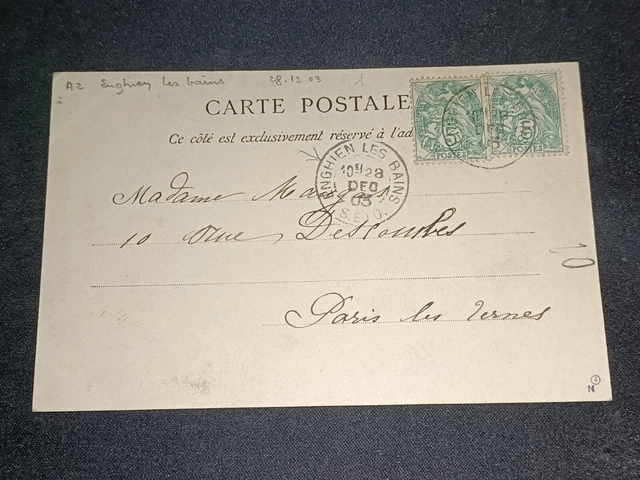 A2 Enghien les bains 28.12.03
CARTE POSTALE
Ce côté est exclusivement réservé à l'ad
ENGHIEN LES BAINS
10 28
DEC
03
S.ET O.
POSTES
POSTES
Madame
10 Rue Descombes
Paris les Ternes
10
N